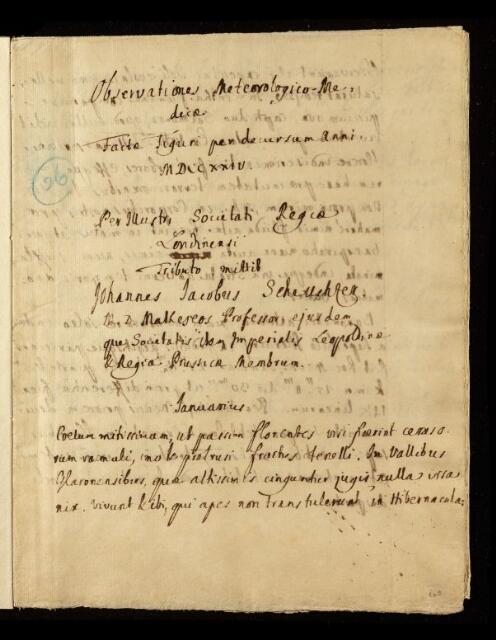 Observationes Meteorologico-Me-
dicæ
Factæ Tiguri per decursum anni
MDCCXXIV
96
Per Illustri Societati Regiæ
Londinensi
Tributo mittit
Johannes Jacobus Scheuchzer,
M. D. Matheseos Professor, ejusdem
que Societatis, item Imperialis Leopoldinæ
& Regiæ Prussicæ Membrum.
Januarius
Coelum mitissimum, ut passim florentes visi fuerint ceraso-
rum rami, imo & protrusi fructus tenelli. In Vallibus
Glaronensibus, quæ altissimis cinguntur jugis nulla visa
nix. vivunt & ibi, qui apes non transtulerunt in Hibernacula: